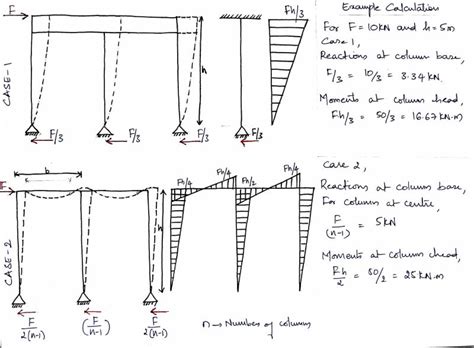 F
Fh/3
h
CASE-1
F/3
F/3
F/3
Example Calculation
For F = 10kN and h = 5m
Case 1,
Reactions at column base,
F/3 = 10/3 = 3.34 kN.
Moments at column head,
Fh/3 = 50/3 = 16.67 kN.m
b
F
h
CASE-2
Fh/4
Fh/4
Fh/2
Fh/4
Fh/4
F/2(n-1)
(F/n-1)
F/2(n-1)
n → Number of columns
Case 2,
Reactions at column base,
For column at centre,
F/(n-1) = 5kN
Moments at column head,
Rh/2 = 50/2 = 25 kN.m